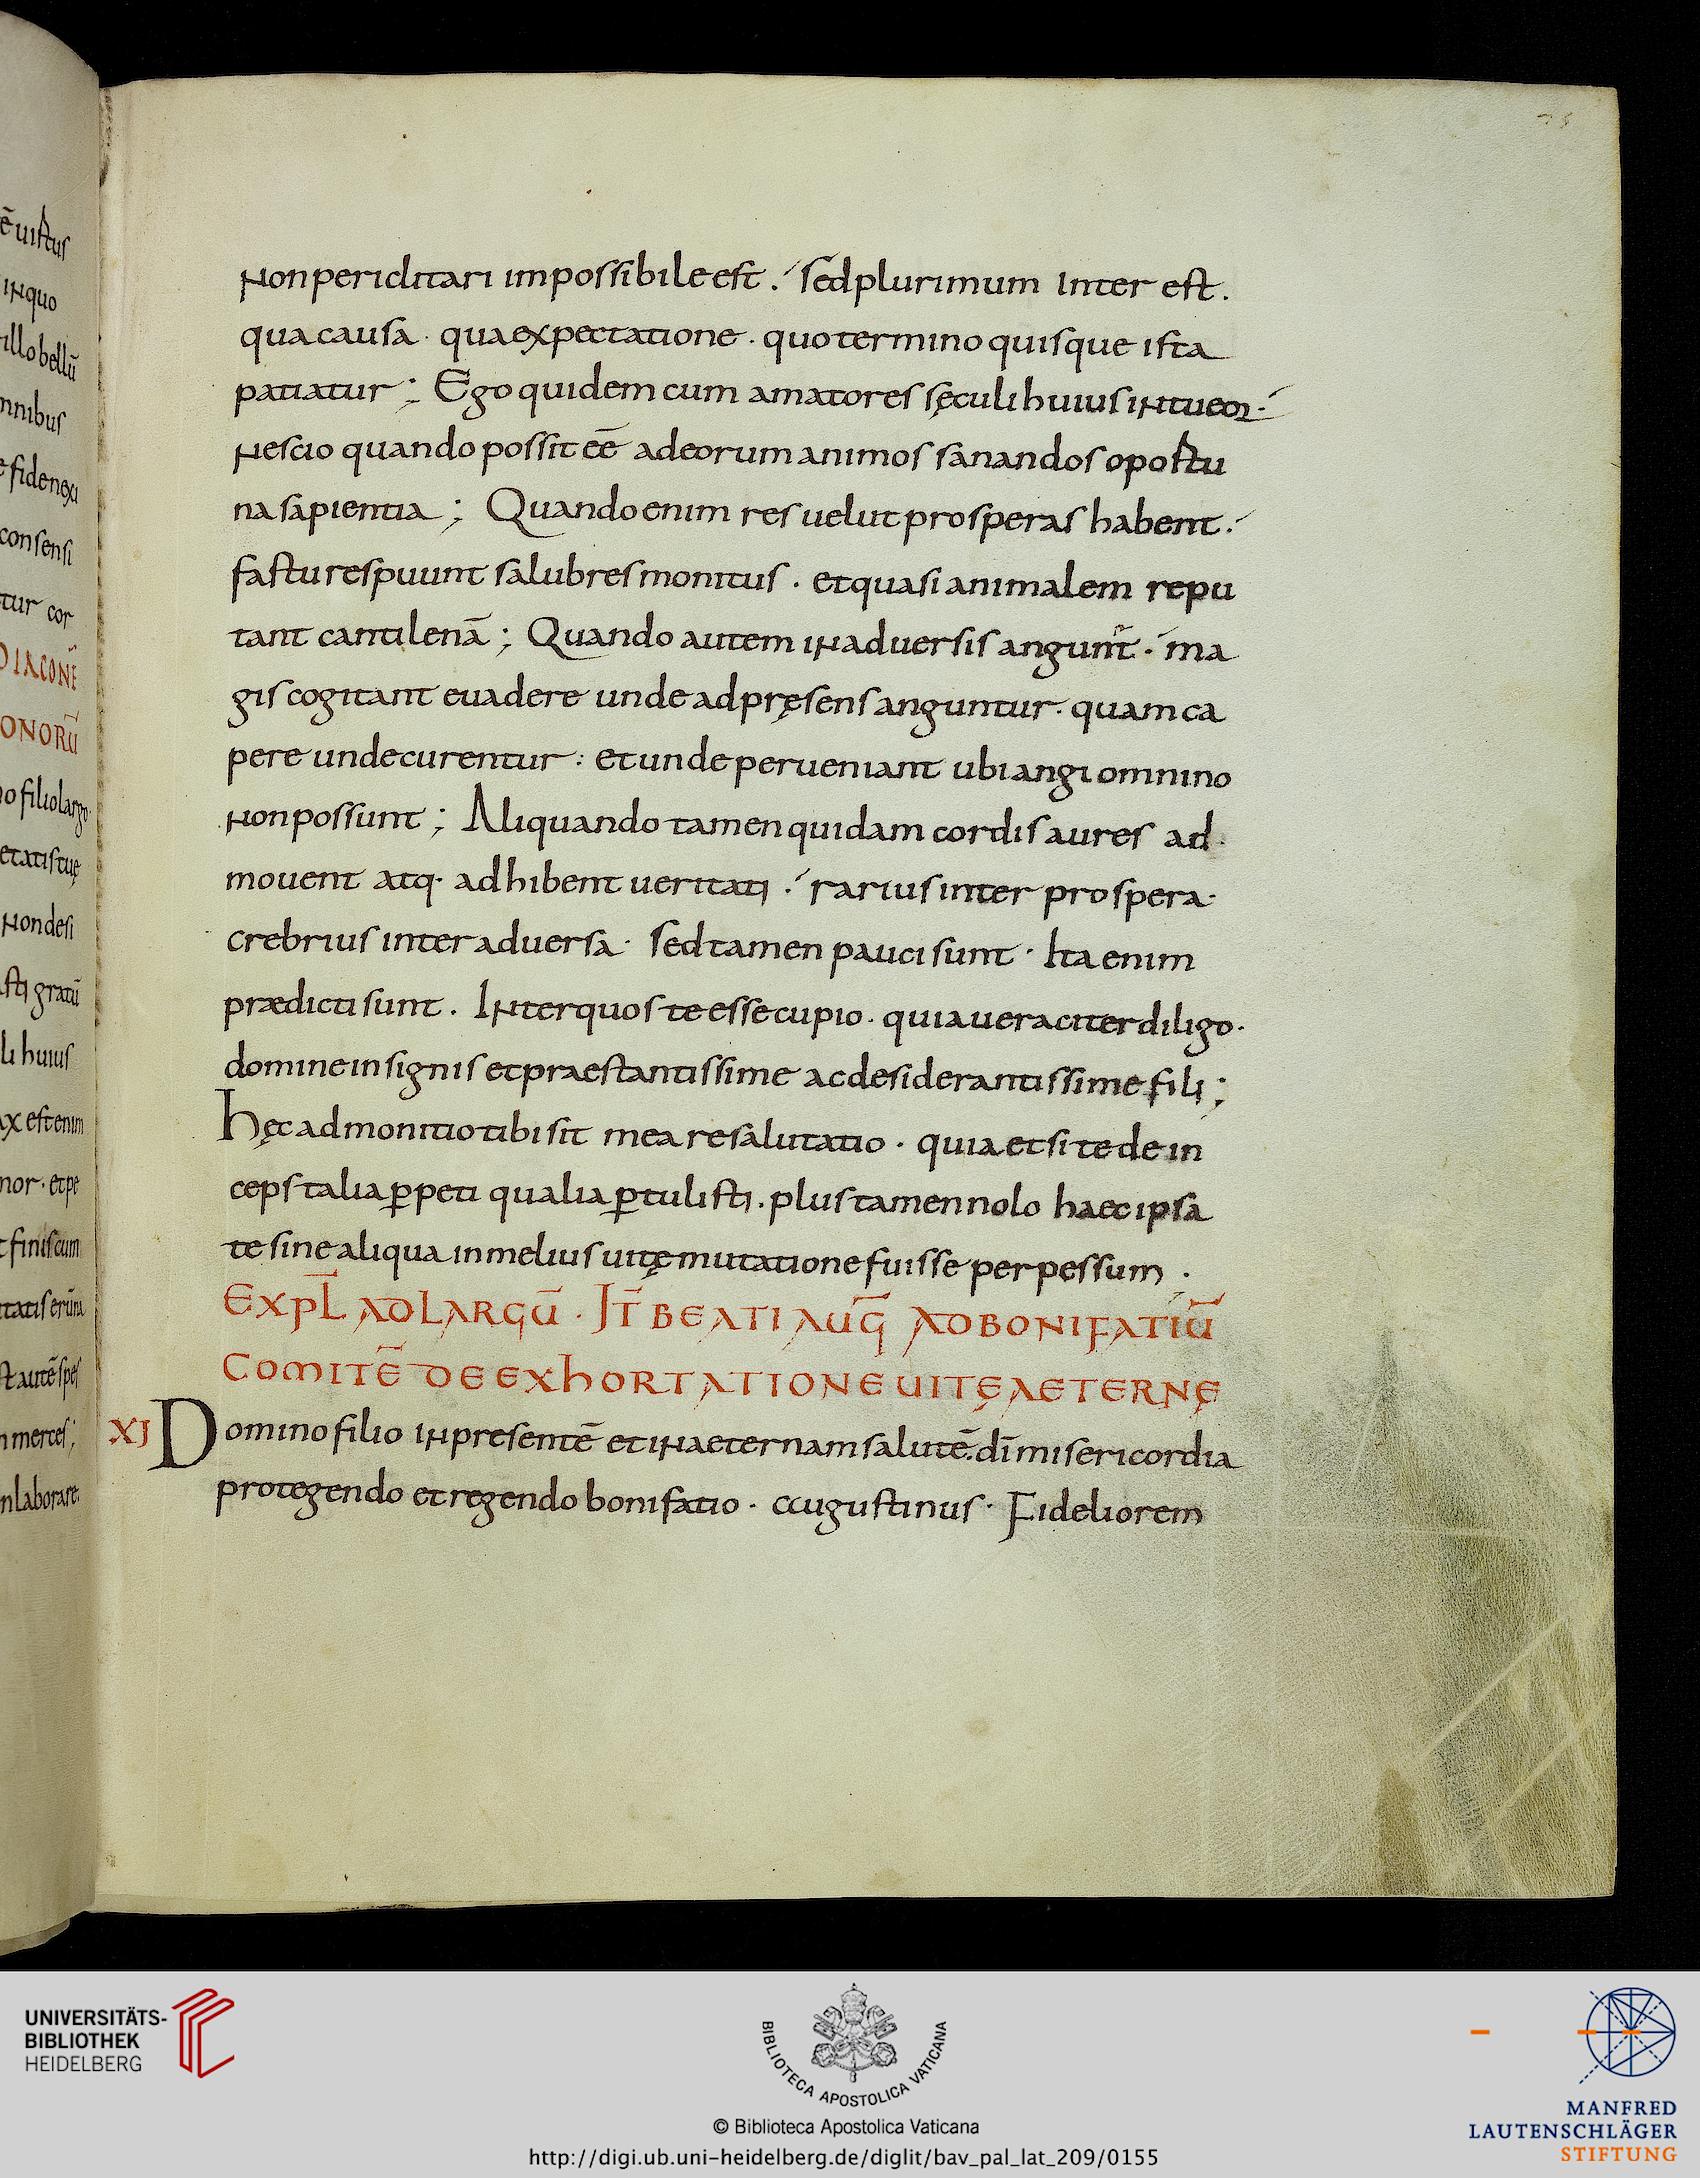 ē uictus
inquo
illo bellū
mnibus
e fidenexi
consensi
tur cor
DIACONĒ
ONORŪ
no filiolargo
etatis tuę
nondesi
sti gratū
li huius
ax est enim
nor · et pe
t finis cum
tatis erūna
st autē spes
n merces ;
nlaborare
non periclitari impossibile est . sed plurimum inter est .
qua causa · qua expectatione · quo termino quisque ista
patiatur ; Ego quidem cum amatores sęculi huius intueor ·
nescio quando possit eē ad eorum animos sanandos oportu
na sapientia ; Quando enim res uelut prosperas habent .
fastu respuunt salubres monitus . et quasi animalem repu
tant cantilenā ; Quando autem in aduersis angunt̄ . ma
gis cogitant euadere unde ad pręsens anguntur . quam ca
pere unde curentur : et unde perueniant ubi angi omnino
non possunt ; Aliquando tamen quidam cordis aures ad
mouent atq· adhibent ueritati . rarius inter prospera ·
crebrius inter aduersa · sed tamen pauci sunt · Ita enim
prædicti sunt . Inter quos te esse cupio . quia ueraciter diligo ·
domine insignis et praestantissime ac desiderantissime fili ;
hęc admonitio tibi sit mea resalutatio . quia etsi te dein
ceps talia ꝑpeti qualia ꝑtulisti . plus tamen nolo haec ipsa
te sine aliqua in melius uitę mutatione fuisse perpessum .
EXPL̄ AD LARGŪ · IT̄ BEATI AUḠ AD BONIFATIŪ
COMITĒ DE EXHORTATIONE UITĘ AETERNĘ
XI Domino filio in presentē et in aeternam salutē . dī misericordia
protegendo et regendo bonifatio · augustinus · Fideliorem
UNIVERSITÄTS-
BIBLIOTHEK
HEIDELBERG
BIBLIOTECA APOSTOLICA VATICANA
© Biblioteca Apostolica Vaticana
http://digi.ub.uni-heidelberg.de/diglit/bav_pal_lat_209/0155
MANFRED
LAUTENSCHLÄGER
STIFTUNG